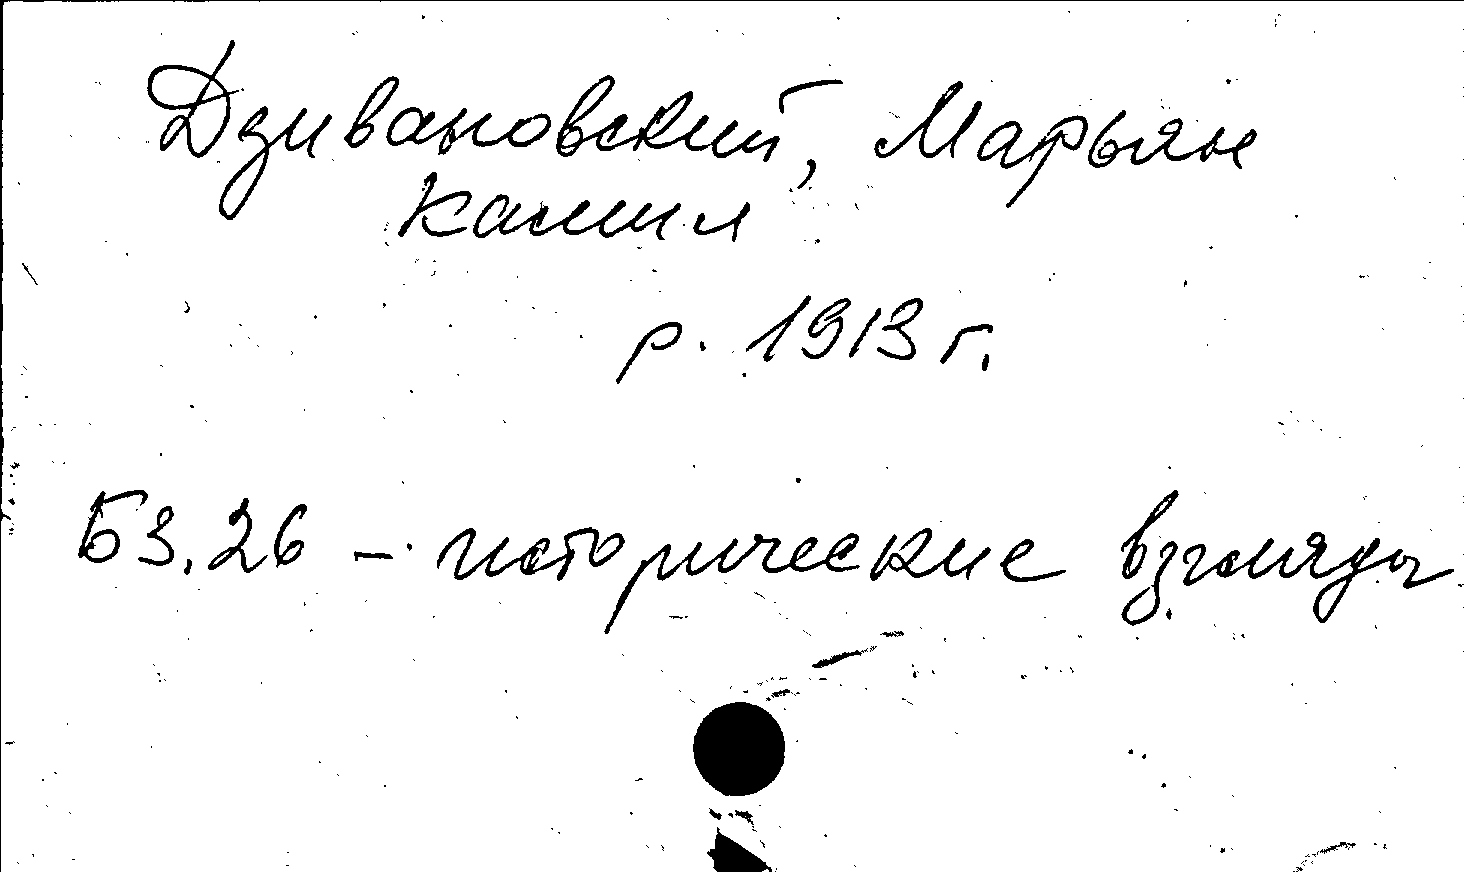 Дзивановский, Марьян
Камил
р. 1913 г.
Б3.26 - исторические взгляды